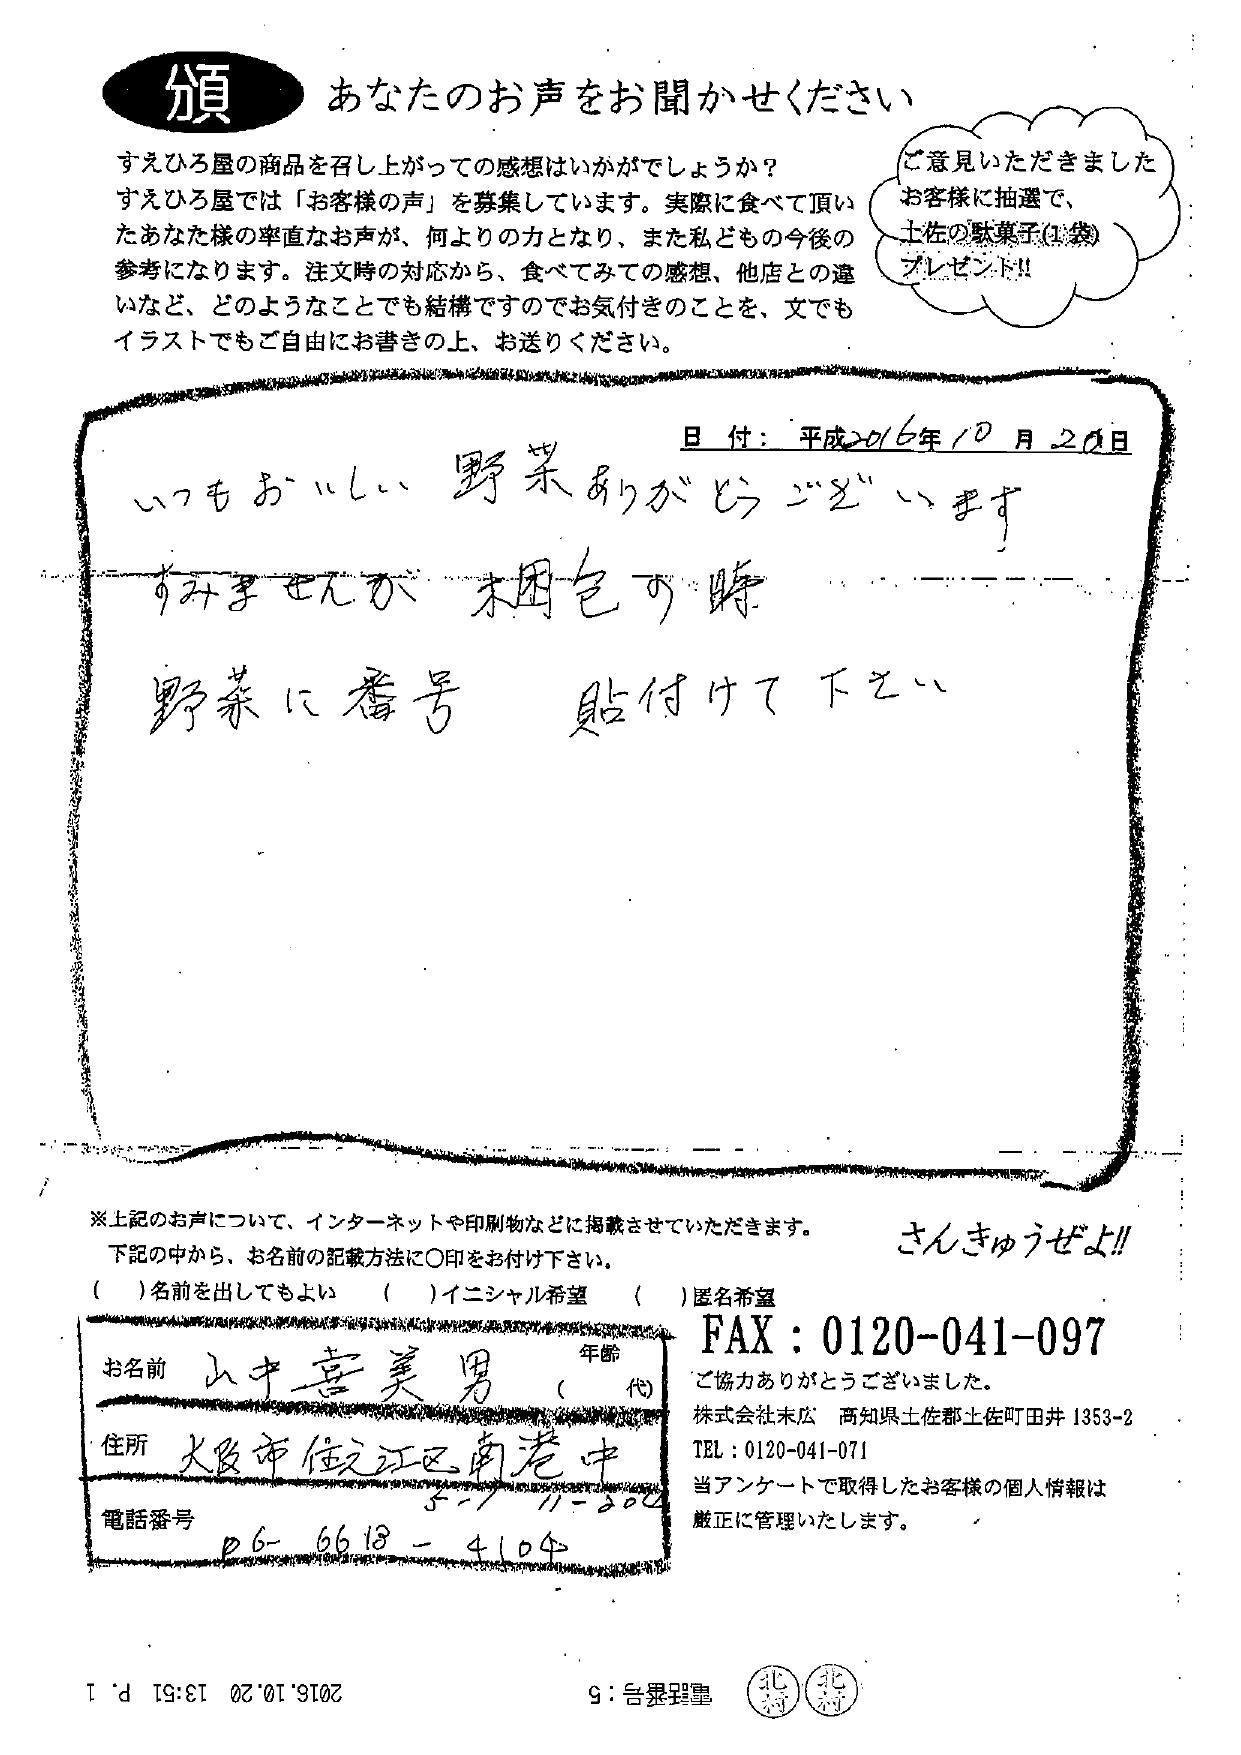 頒
あなたのお声をお聞かせください
すえひろ屋の商品を召し上がっての感想はいかがでしょうか？
すえひろ屋では「お客様の声」を募集しています。実際に食べて頂い
たあなた様の率直なお声が、何よりの力となり、また私どもの今後の
参考になります。注文時の対応から、食べてみての感想、他店との違
いなど、どのようなことでも結構ですのでお気付きのことを、文でも
イラストでもご自由にお書きの上、お送りください。
ご意見いただきました
お客様に抽選で、
土佐の駄菓子(1袋)
プレゼント!!
日 付： 平成2016年10月20日
いつもおいしい 野菜ありがとうございます
すみませんが 梱包の時
野菜に番号 貼付けて下さい
※上記のお声について、インターネットや印刷物などに掲載させていただきます。
下記の中から、お名前の記載方法に〇印をお付け下さい。
( )名前を出してもよい ( )イニシャル希望 ( )匿名希望
さんきゅうぜよ!!
お名前 山中喜美男 年齢
( 代)
住所 大阪市住之江区南港中
5-1 11-204
電話番号
06-6613-4104
FAX：0120-041-097
ご協力ありがとうございました。
株式会社末広 高知県土佐郡土佐町田井1353-2
TEL：0120-041-071
当アンケートで取得したお客様の個人情報は
厳正に管理いたします。
北村 北村
電話番号：5
2016.10.20 13:51 P. 1